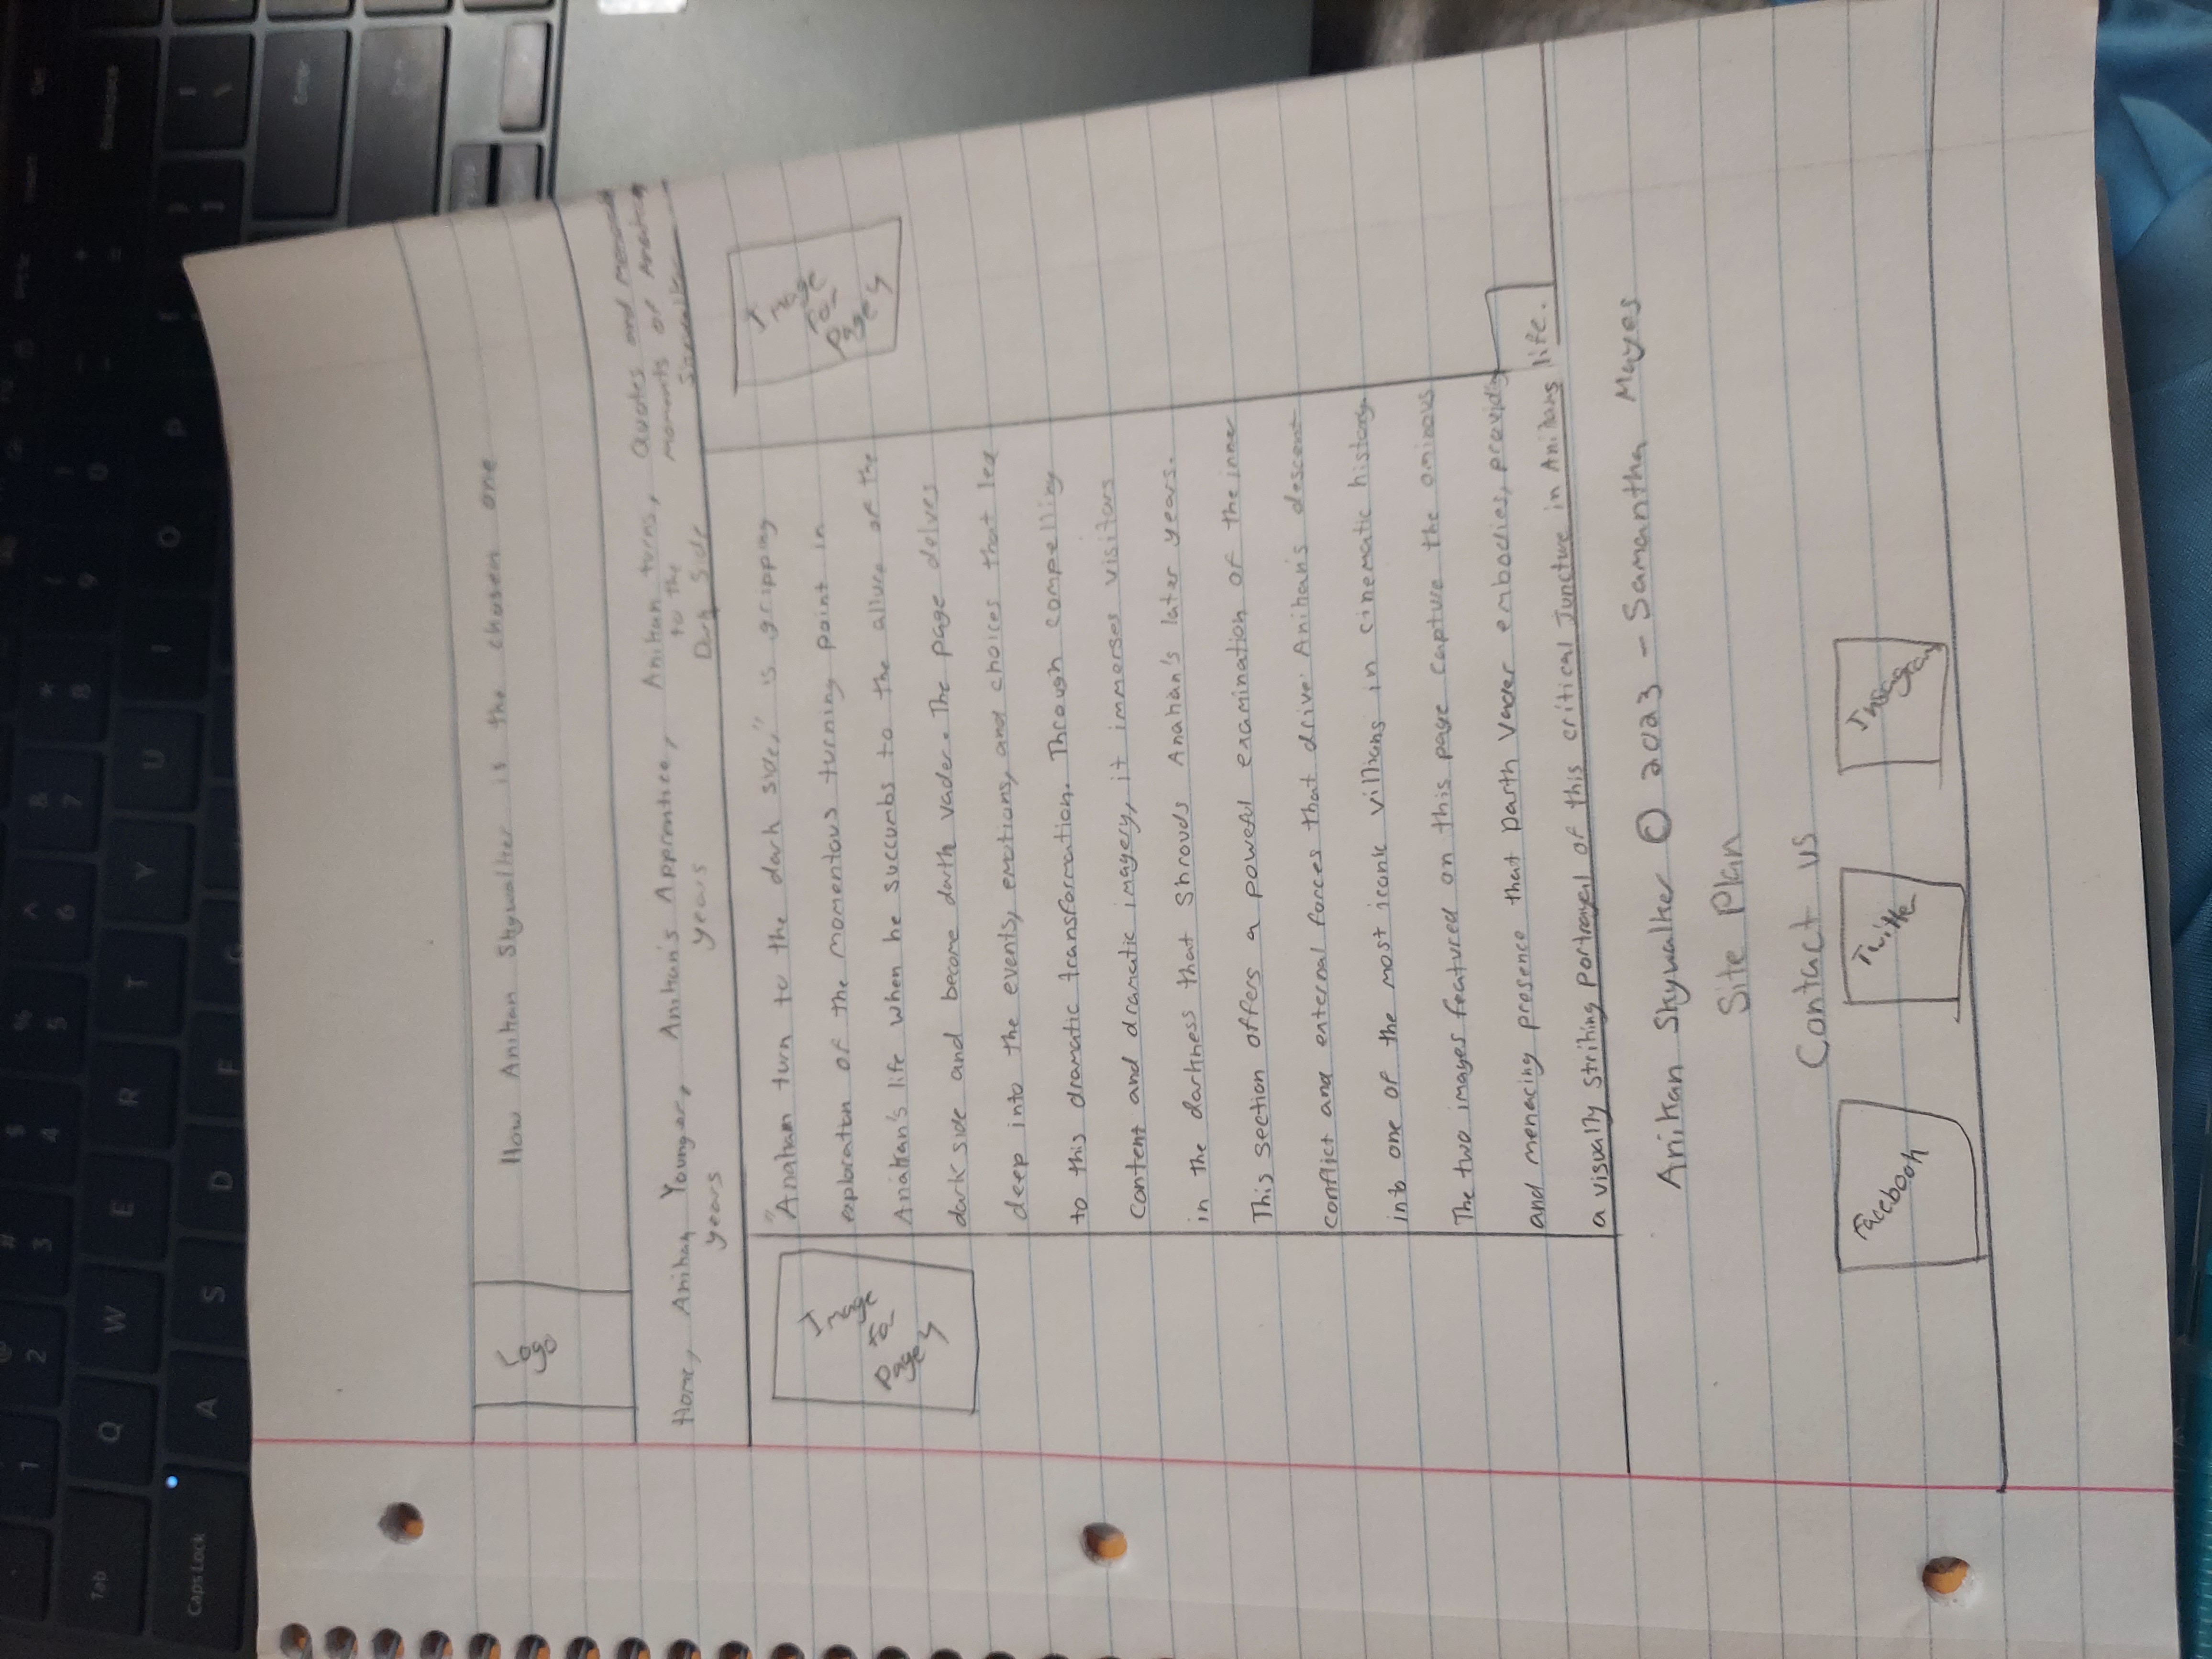 1 2 3 4 5 6 7 8 9 0
Tab Q W E R T Y U I O P Backspace
Caps Lock A S D F G Enter
Logo
How Anikan Skywalker is the chosen one
Home, Anikan Younger, Anikan's Apprentice, Anikan turns, Quotes and
years years to the moments of
Dark Side Skywalker
Image
for
page 4
Image
for
page 4
"Anakam turn to the dark side," is gripping
exploration of the momentous turning point in
Anakan's life when he succumbs to the allure of the
dark side and become darth vader. The page delves
deep into the events, emotions, and choices that led
to this dramatic transformation. Through compelling
content and dramatic imagery, it immerses visitors
in the darkness that shrouds Anakan's later years.
This section offers a poweful examination of the inner
conflict and external forces that drive Anikan's descent
into one of the most iconic villians in cinematic history.
The two images featured on this page capture the ominous
and menacing presence that Darth Vader embodies, providing
a visually striking portrayal of this critical Juncture in Anikans life.
Anikan Skywalker © 2023 - Samantha Mayes
Site Plan
Contact us
Facebook
Twitter